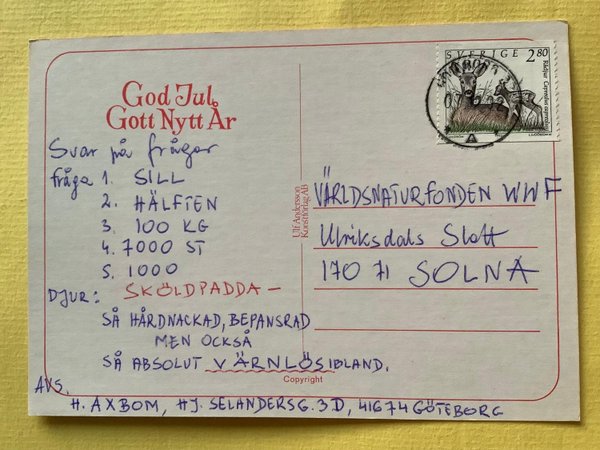 God Jul
Gott Nytt År
Svar på frågor
fråga 1. SILL
2. HÄLFTEN
3. 100 KG
4. 7000 ST
5. 1000
DJUR: SKÖLDPADDA –
SÅ HÅRDNACKAD, BEPANSRAD
MEN OCKSÅ
SÅ ABSOLUT VÄRNLÖS IBLAND.
AVS.
H. AXBOM, HJ. SELANDERSG. 3D, 41674 GÖTEBORG
Ulf Andersson
Konstförlag AB
Copyright
SVERIGE 2.80
Rådjur Capreolus capreolus
VÄRLDSNATURFONDEN WWF
Ulriksdals Slott
170 71 SOLNA